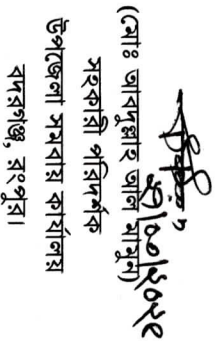 ২৭/০৩/২০২৫
(মোঃ আবদুল্লাহ আল মামুন)
সহকারী পরিদর্শক
উপজেলা সমবায় কার্যালয়
বদরগঞ্জ, রংপুর।